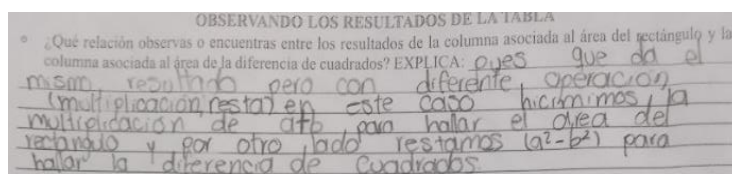 OBSERVANDO LOS RESULTADOS DE LA TABLA
¿Qué relación observas o encuentras entre los resultados de la columna asociada al área del rectángulo y la
columna asociada al área de la diferencia de cuadrados? EXPLICA: pues que da el
mismo resultado pero con diferente operación
(multiplicación, resta) en este caso hicimimos la
multiplicación de a+b para hallar el area del
rectangulo y por otro lado restamos (a²-b²) para
hallar la diferencia de cuadrados.